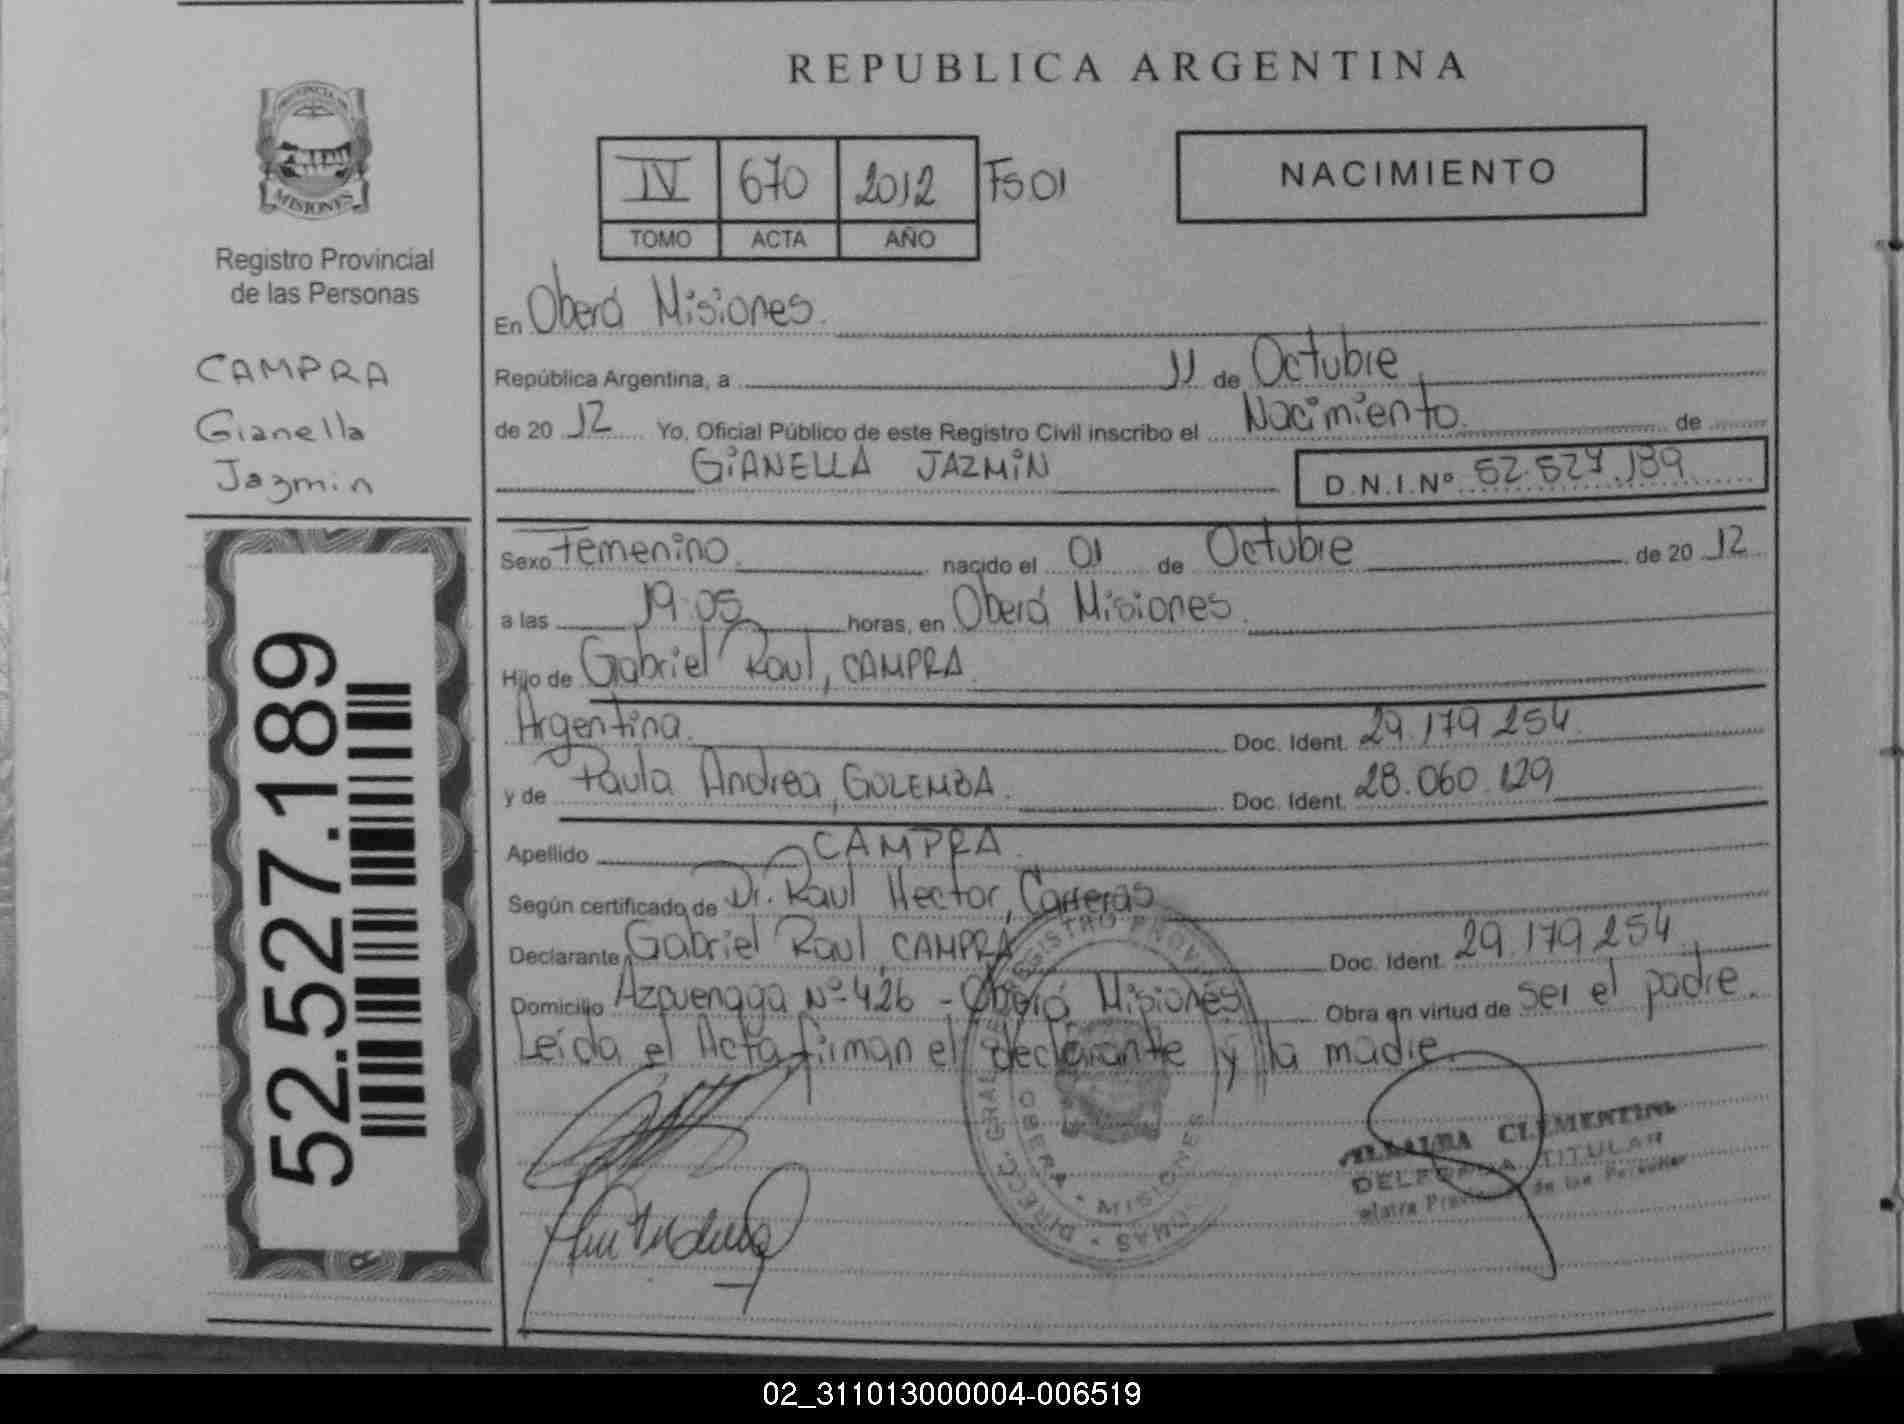 REPUBLICA ARGENTINA
PROVINCIA DE
MISIONES
Registro Provincial
de las Personas
CAMPRA
Gianella
Jazmin
52.527.189
IV 670 2012 Fs 01
TOMO ACTA AÑO
NACIMIENTO
En Oberá Misiones.
República Argentina, a 11 de Octubre
de 20 12 Yo, Oficial Público de este Registro Civil inscribo el Nacimiento de
GIANELLA JAZMIN D.N.I.Nº 52.527.189
Sexo Femenino nacido el 01 de Octubre de 20 12
a las 19:05 horas, en Oberá Misiones.
Hijo de Gabriel Raul, CAMPRA
Argentina. Doc. Ident. 29.179.254
y de Paula Andrea, GOLEMBA. Doc. Ident. 28.060.129
Apellido CAMPRA.
Según certificado de Dr. Raul Hector, Carreras
Declarante Gabriel Raul, CAMPRA Doc. Ident. 29.179.254
Domicilio Azcuenaga Nº 426 - Oberá Misiones Obra en virtud de ser el padre.
Leída el Acta firman el declarante y la madre.
DIRECC. GRAL. DE REGISTRO PROV.
OBERA - MISIONES
CLEMENTINA
DELEGADA TITULAR
de las Personas
02_311013000004-006519